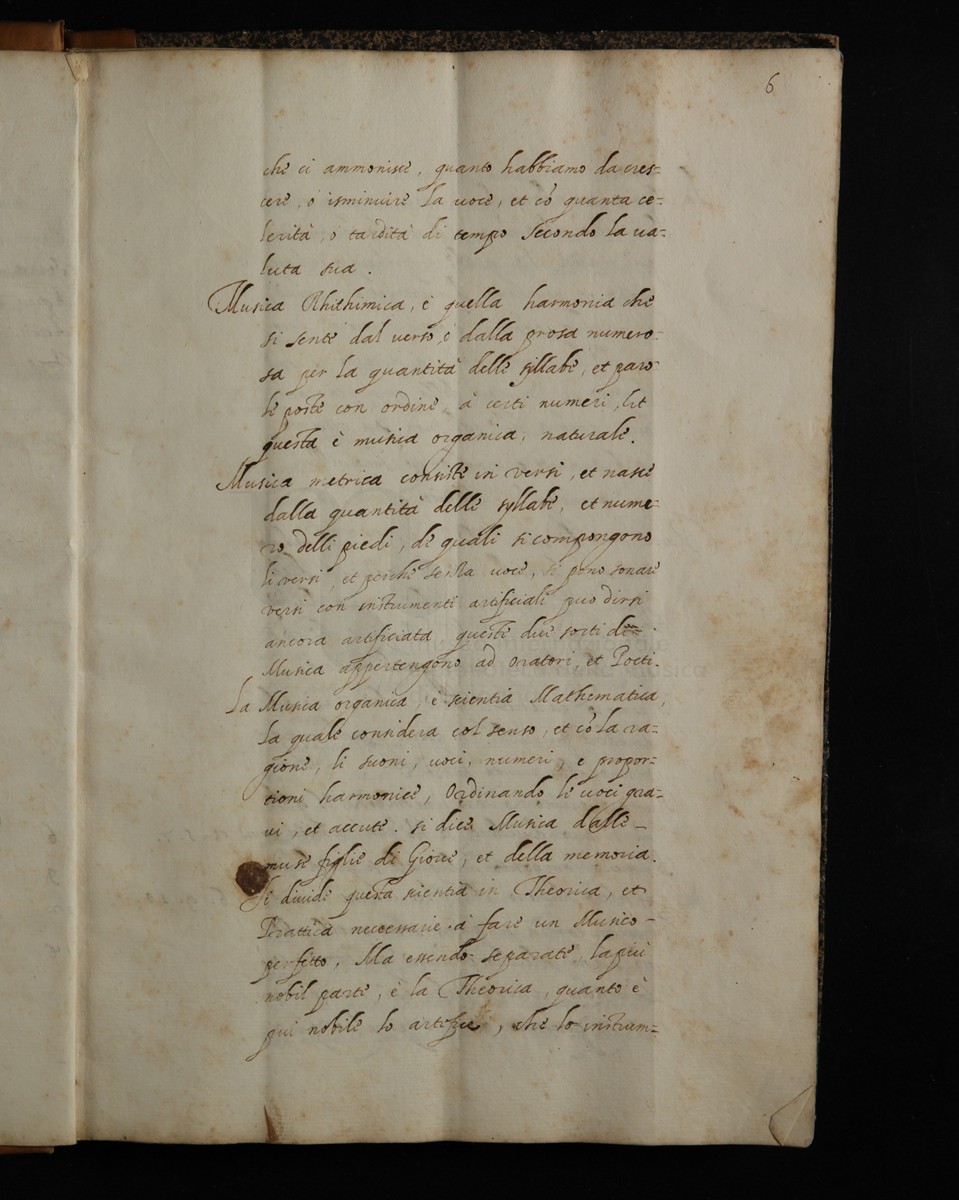 6
che ci ammonisce, quanto habbiamo da cres=
cere, o isminuire la uoce, et cō quanta ce=
lerità, o tardità di tempo secondo la ua=
luta sua.
Musica Rhithimica, è quella harmonia che
si sente dal uerso, e dalla prosa numero=
sa per la quantità delle syllabe, et paro
le poste con ordine, à certi numeri, et
questa è musica organica, naturale.
Musica metrica consiste in versi, et nasce
dalla quantità delle syllabe, et nume
ro delli piedi, de quali si compongono
li versi, et perche senza uoce, si pono sonare
versi con instrumenti artificiali puo dirsi
ancora artificiata, queste due sorti de
Musica appertengono ad Oratori, et Poeti.
La Musica organica, è scientia Mathematica,
la quale considera col senso, et cō la ra=
gione, li suoni, uoci, numeri, e propor=
tioni harmonice, Ordinando le uoci gra=
ui, et accute. si dice Musica dalle
muse figlie di Gioue, et della memoria.
Si diuide questa scientia in Theorica, et
Prattica necessarie à fare un Musico
perfetto, Ma essendo separate, la piu
nobil parte, è la Theorica, quanto è
piu nobile lo artefice, che lo instrum=